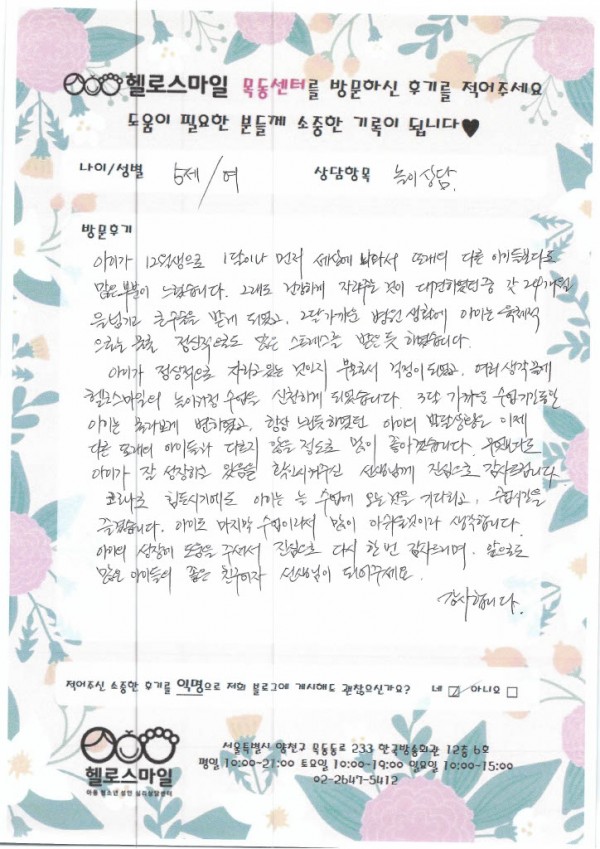 헬로스마일 목동센터를 방문하신 후기를 적어주세요
도움이 필요한 분들께 소중한 기록이 됩니다♥
나이/성별 5세/여 상담항목 놀이상담
방문후기
아이가 12월생으로 1달이나 먼저 세상에 나와서 또래의 다른 아이들보다도
많은부분이 느렸습니다. 그래도 건강하게 자라주는 것이 대견하였던중 각 24개월
을넘기고 큰수술을 받게 되었고, 2달가까운 병원 생활에 아이는 육체적
으로는 물론 정신적으로도 많은 스트레스를 받은듯 하였습니다.
아이가 정상적으로 자라고 있는 것인지 부모로서 걱정이 되었고, 여러 생각끝에
헬로스마일의 놀이과정 수업을 신청하게 되었습니다. 3달 가까운 수업기간동안
아이는 놀라보게 변하였고, 항상 느린듯하였던 아이의 발달상황은 이제
다른 또래의 아이들과 다르지 않을 정도로 많이 좋아졌습니다. 무엇보다도
아이가 잘 성장하고 있음을 확신시켜주신 선생님께 진심으로 감사드립니다
코로나로 힘든시기에도 아이는 늘 수업에 오는 날을 기다리고, 수업시간을
즐겼습니다. 아이도 마지막 수업이라서 많이 아쉬울것이라 생각합니다.
아이의 성장에 도움을 주셔서 진심으로 다시 한번 감사드리며, 앞으로도
많은 아이들의 좋은 친구이자 선생님이 되어주세요.
감사합니다.
적어주신 소중한 후기를 익명으로 저희 블로그에 게시해도 괜찮으신가요? 네 ☑ 아니요 ☐
헬로스마일
아동 청소년 성인 심리상담센터
서울특별시 양천구 목동동로 233 한국방송회관 12층 6호
평일 10:00-21:00 토요일 10:00-19:00 일요일 10:00-15:00
02-2647-5412